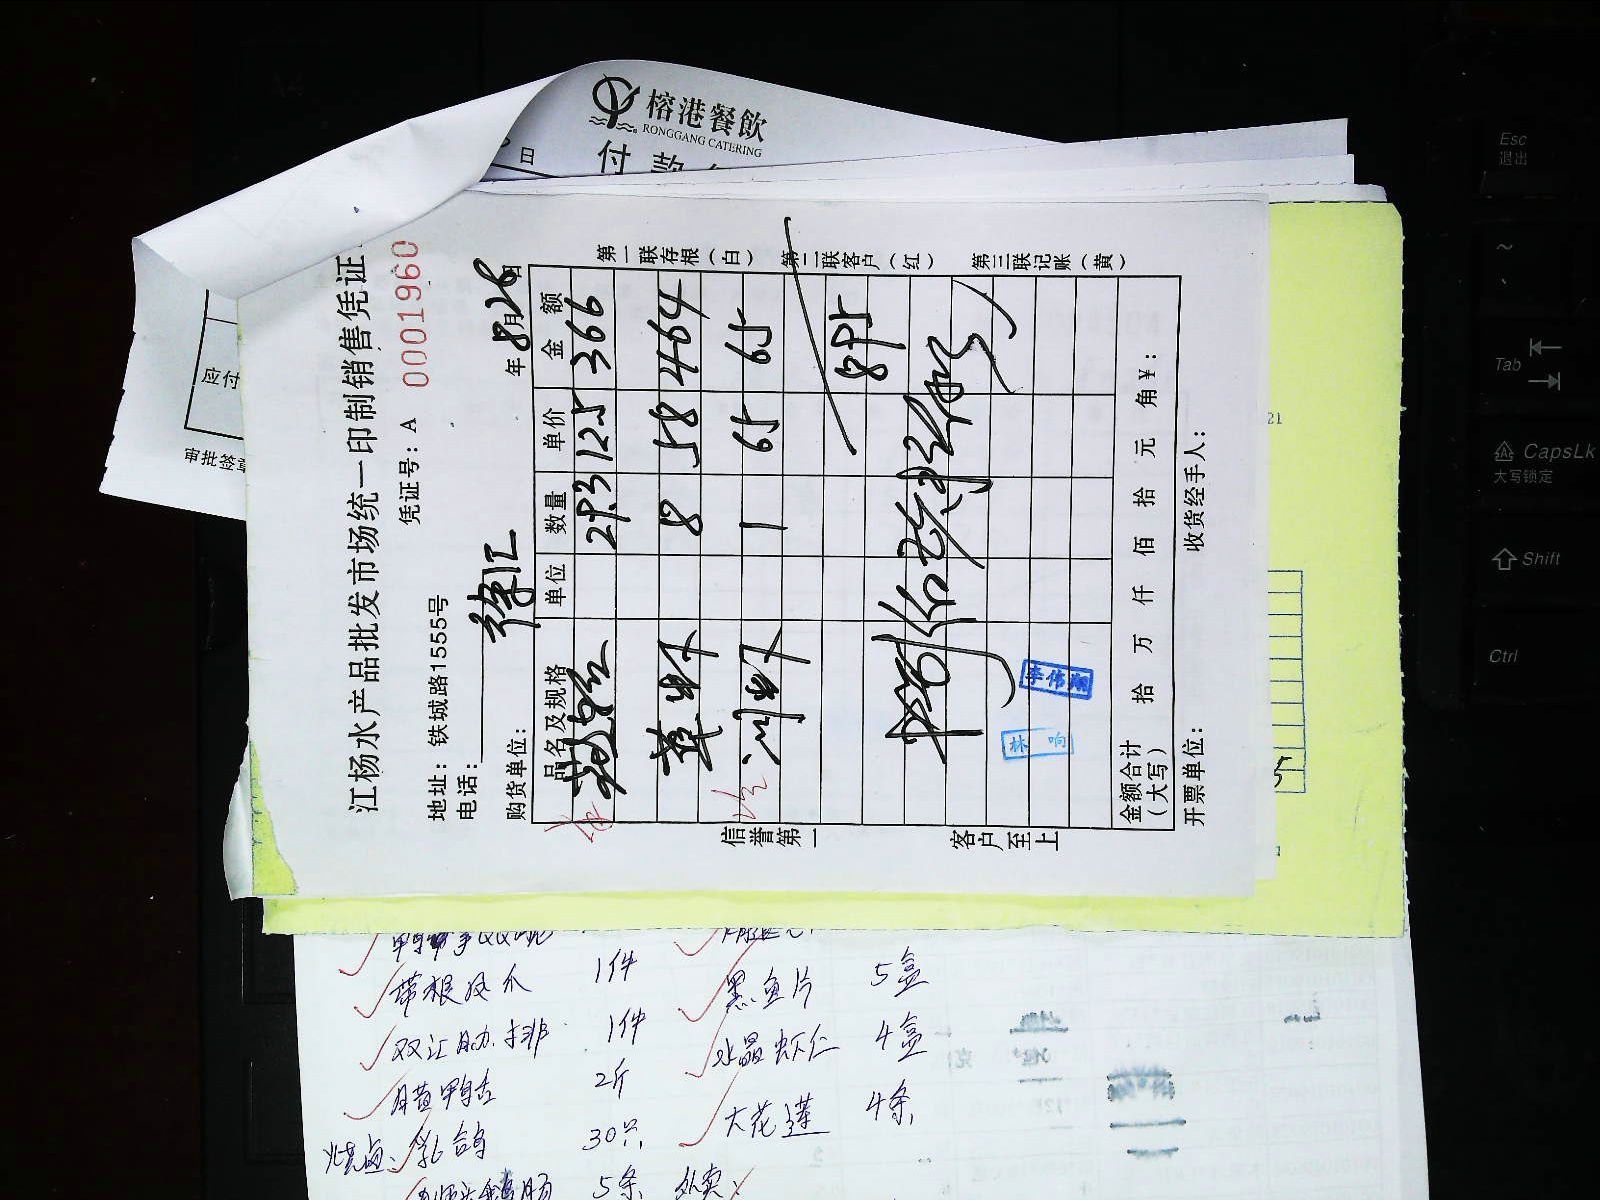 榕港餐飲
RONGGANG CATERING
付款
日
应付
审批签章
江杨水产品批发市场统一印制销售凭证
凭证号: A 0001960
地址: 铁城路1555号
电话:
购货单位: 徐汇
年 8月26日
品名及规格 单位 数量 单价 金额
293 125 366
8 58 464
1 65 65
895
金额合计(大写) 拾 万 仟 佰 拾 元 角 ¥:
开票单位: 收货经手人:
第一联存根(白) 第二联客户(红) 第三联记账(黄)
信誉第一 客户至上
李伟翔
林响
1件
双汇肋排 1件
2斤
乳鸽 30只
5条
黑鱼片 5盒
水晶虾仁 4盒
大花莲 4条
外卖:
21
Esc
退出
~
Tab
CapsLk
大写锁定
Shift
Ctrl